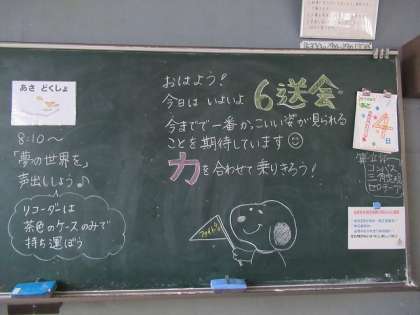 あさ どくしょ
8:10～
「夢の世界を」
声出ししよう♪
リコーダーは
茶色のケースのみで
持ち運ぼう
おはよう！
今日は いよいよ 6送会
今までで一番かっこいい姿が見られる
ことを期待しています
力を合わせて乗りきろう！
コンパス
三角定規
セロテープ
日